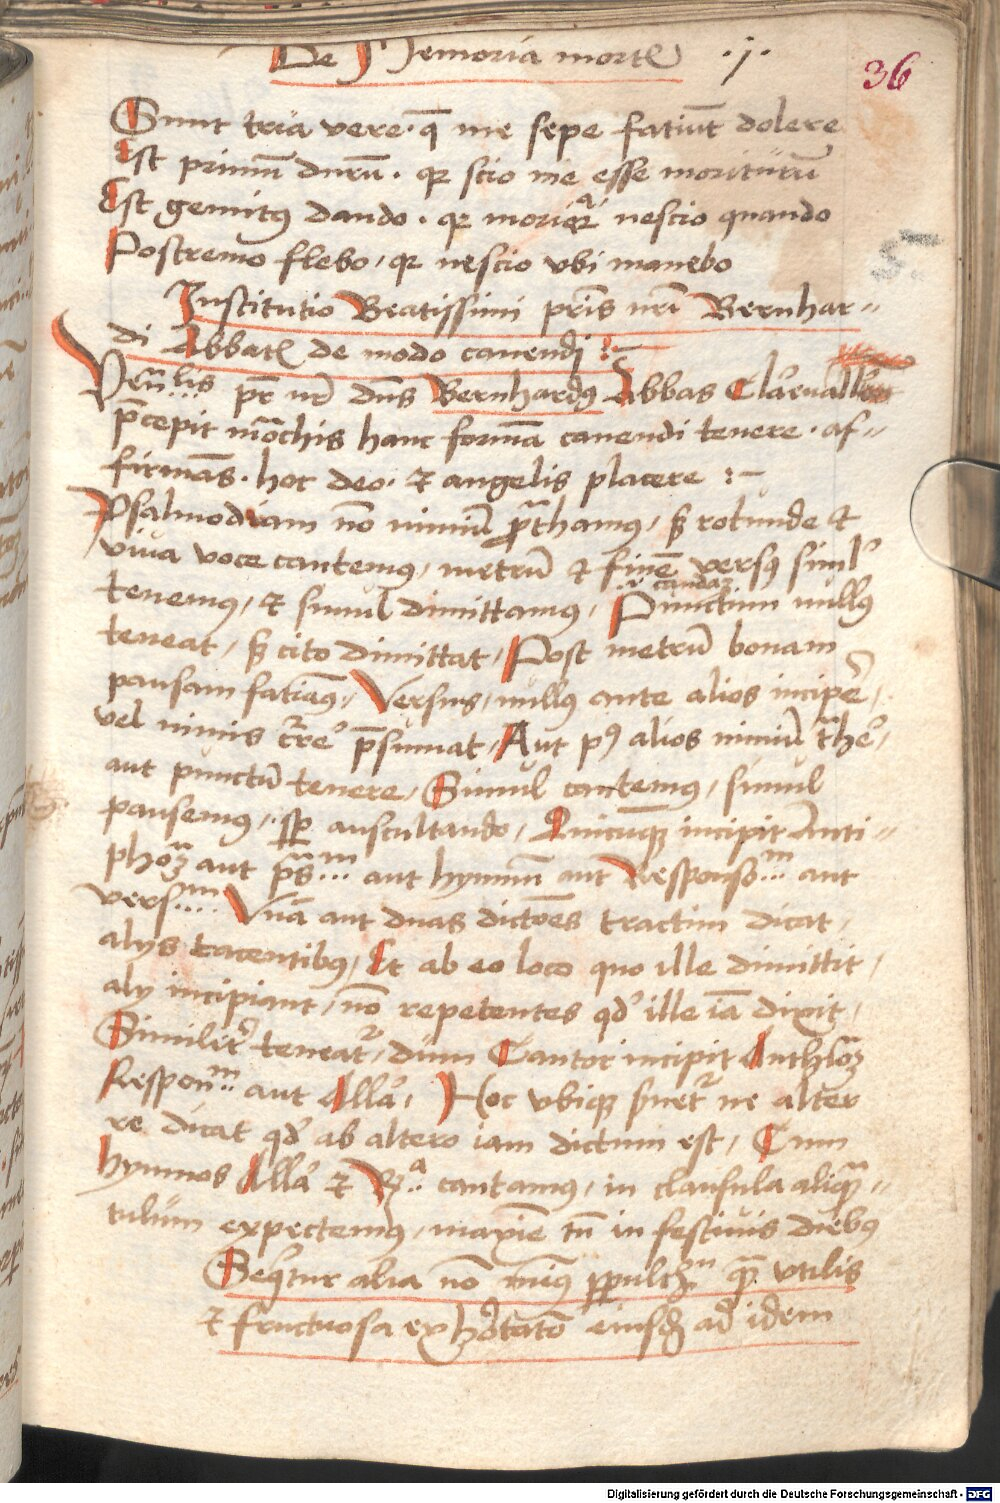 De Memoria mortꝭ ·j·
36
Sunt tria vere· q̄ me sepe fatiūt dolere
Est primū durū· qr scio me esse moriturū
Est gemitꝯ dando· qr moriar nescio quando
Postremo flebo, qr nescio vbi manebo
5
Institutio Beatissimi pr̄is nr̄i Bernhar-
di Abbatꝭ de modo canendi :-
Ven̄lis pr̄ nr̄ dn̄s Bernhardꝯ Abbas
p̄cepit mo̅chis hanc formā canendi tenere· af-
firmās· hoc deo· et angelis placere :-
Psalmodiam nō nimiū p̄thamꝯ, sꝫ rotunde et
viua voce cantemꝯ, metrū et finē versꝯ simul
tenemꝯ, et simul dimittamꝯ, Punctum nullꝯ
teneat, sꝫ cito dimittat, Post metrū bonam
pausam fatiamꝯ, Versus, nullꝯ ante alios incipe̅,
vel nimis cr̄re p̄sumat, Aut pꝰ alios nimiū t̄he̅,
aut punctū tenere, Simul cantemꝯ, simul
pausemꝯ, sꝑ auscultando, Quicūqꝫ incipit Anti-
phoꝫ aut p̄s...m aut hymnū aut Responso...m aut
vers....m Vnā aut duas dictōes tractim dicat,
alijs tacentibꝯ, Et ab eo loco quo ille dimittit,
alij incipiant, nō repetentes qd' ille iā dixit,
Similit̄ teneat᷑, dum Cantor incipit Anthōꝫ
Respon..m aut Alla̅, Hoc vbiqꝫ s̄uet᷑ ne alter
re dicat qd' ab altero iam dictum est, Cum
hymnos Alla̅ et R..a cantamꝯ, in clausula aliqn̄-
tulum expectemꝯ, maxīe tn̄ in festiuis diebꝯ
Seq̄tur alia nō minꝯ q̄ꝫ vtilis
et fructuosa exhortatō eiusdꝫ ad idem
Digitalisierung gefördert durch die Deutsche Forschungsgemeinschaft - DFG